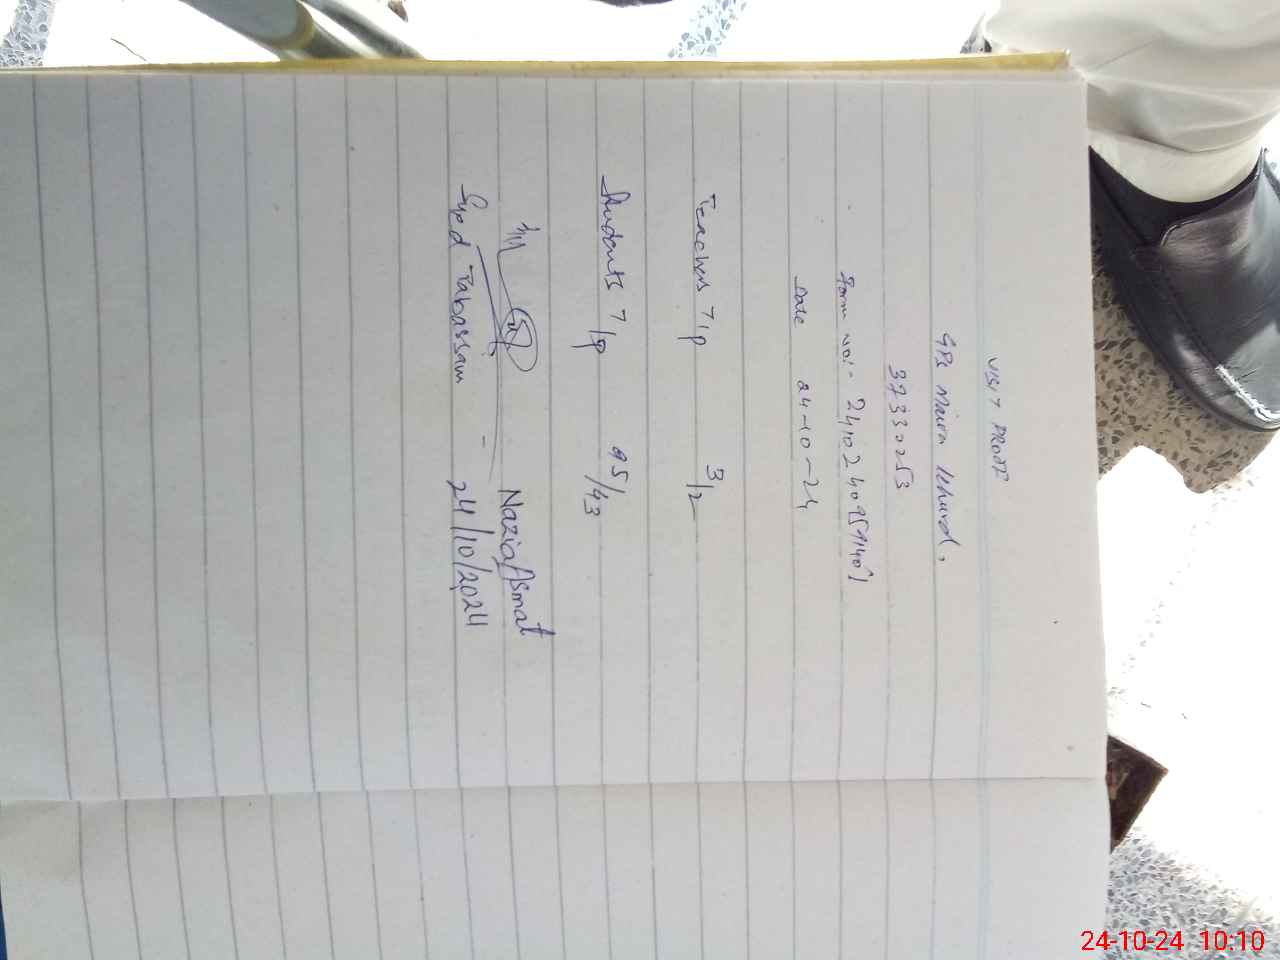 VISIT PROOF
GPS Maira Khurd.
37330253
Form No:- 24102409591401
Date 24-10-24
Teachers T/P 3/2
Students T/P 95/43
Nazia Asmat
Syed Tabassam - 24/10/2024
24-10-24 10:10